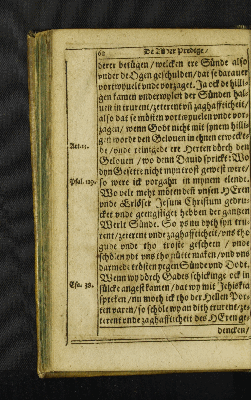 62 De Ander Predige/
derer betügen/ welcken ere Sünde also
vnder de Ogen geschulden/ dat se darauer
vortwyuelt vnde vorzaget. Ja ock de hilli-
gen kamen vnderwylen der Sünden hal-
uen in trurent/ zetterent vñ zaghaffticheit/
also dat se mösten vortwyuelen vnde vor-
zagen/ wenn Godt nicht mit synem hilli-
gen worde den Gelouen in ehnen erwecke-
Act. 15.
de/ vnde reinigede ere Herten dörch den
Gelouen/ wo denn Dauid spricket: Wo
dyn Gesette nicht myn trost gewest were/
Psal. 119.
so were ick vorgahn in mynem elende.
Wo vele mehr möten deß vnsen HEren
vnde Erlöser Jesum Christum gedrü-
cket vnde geengstiget hebben der gantzen
Werlt Sünde. So ys nu doch syn tru-
rent/ zetterent vnde zaghaffticheit/ vns tho
gude vnde tho troste gescheen/ vnde
schölen ydt vns tho nütte maken/ vnd vns
darmede trösten yegen Sünde vnd Dodt.
Wenn wy dörch Gades schickinge ock in
sülcke angest kamen/ dat wy mit Jehiskia
Esa. 38.
spreken/ nu moth ick tho der Hellen Por-
ten varen/ so schöle wy an dith trurent/ zet-
terent vnde zaghaffticheit des HEren ge-
dencken/